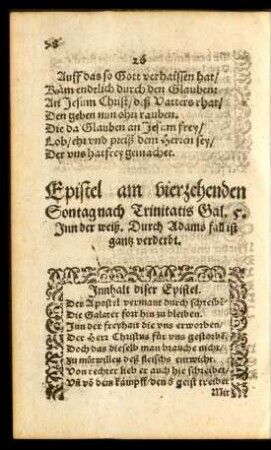 26
Auff das so Gott verhaissen hat/
Käm endtlich durch den Glauben:
An Jesum Christ/ deß Vatters rhat/
Den geben nun ohn rauben.
Die da Glauben an Jesum frey/
Lob/ ehr vnd preiß dem Herren sey/
Der vns hat frey gemachet.
Epistel am vierzehenden
Sontag nach Trinitatis Gal. 5.
Inn der weiß. Durch Adams fall ist
gantz verderbt.
Innhalt diser Epistel.
Der Apostel vermant durch schreibē
Die Galater fort hin zu bleiben.
Inn der freyhait die vns erworben/
Der Herr Christus für vns gestorbē/
Doch das dieselb man brauche nicht/
Zu můtwillen deß fleischs entwicht.
Von rechter lieb er auch hie schreibet/
Vñ võ dem kämpff/ den š geist treibet
Mit